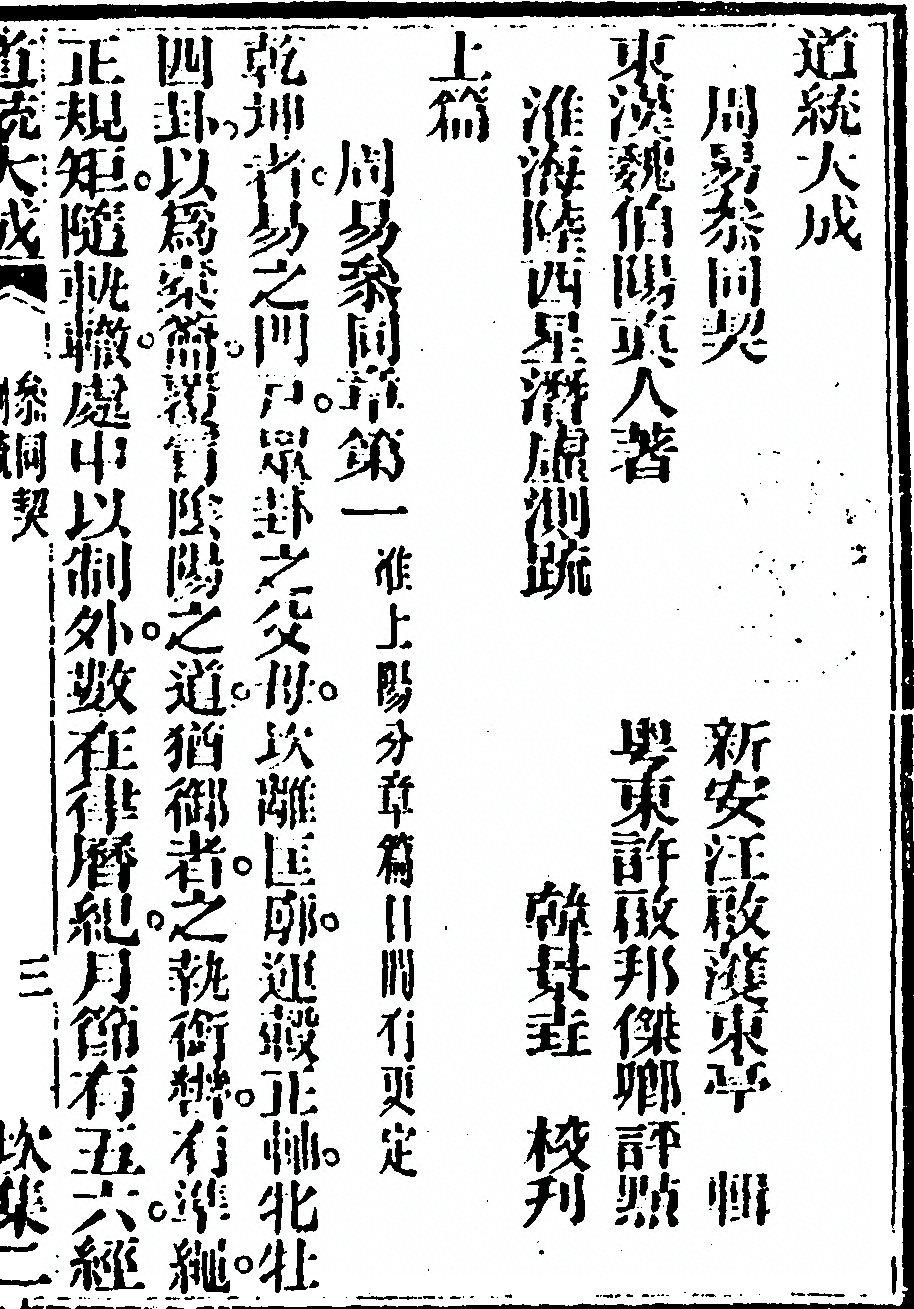 道統大成
周易叅同契　新安汪啟濩東亭　輯
東漢魏伯陽真人著　粵東許啟邦傑卿評點
淮海陸西星潛虛測疏　韓景垚　校刋
上篇
周易叅同章第一　准上陽分章篇目間有更定
乾坤者易之門戶眾卦之父母坎離匡郭運轂正軸牝牡
四卦以爲橐籥覆冒陰陽之道猶御者之執銜轡有準繩
正規矩隨軌轍處中以制外數在律曆紀月節有五六經
道統大成　參同契　三　坎集二